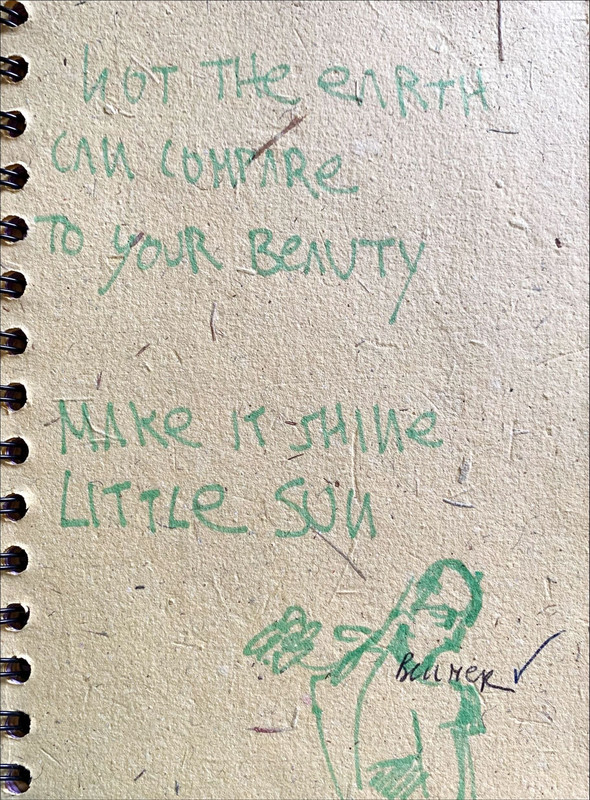 NOT THE EARTH
CAN COMPARE
TO YOUR BEAUTY
MAKE IT SHINE
LITTLE SUN